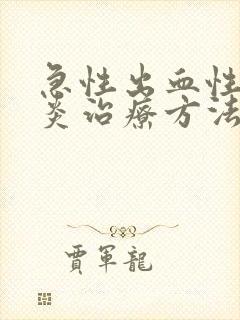 急性出血性
炎治療方法
賈軍龍